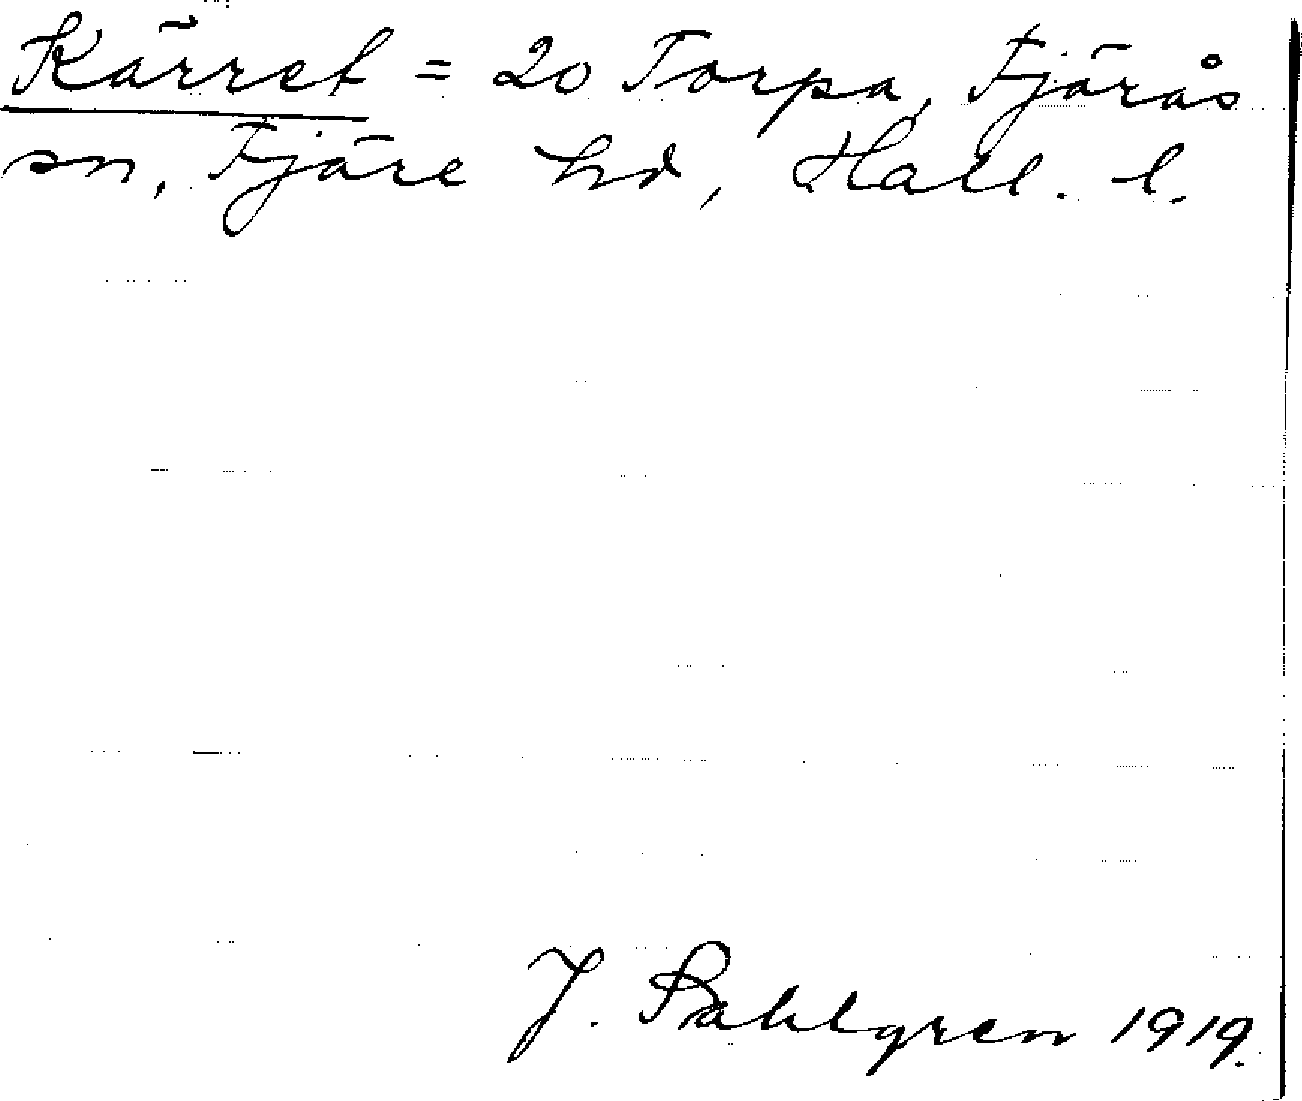 Kärret = 20 Torpa, Fjärås
sn, Fjäre hd, Hall. l.
J. Sahlgren 1919.